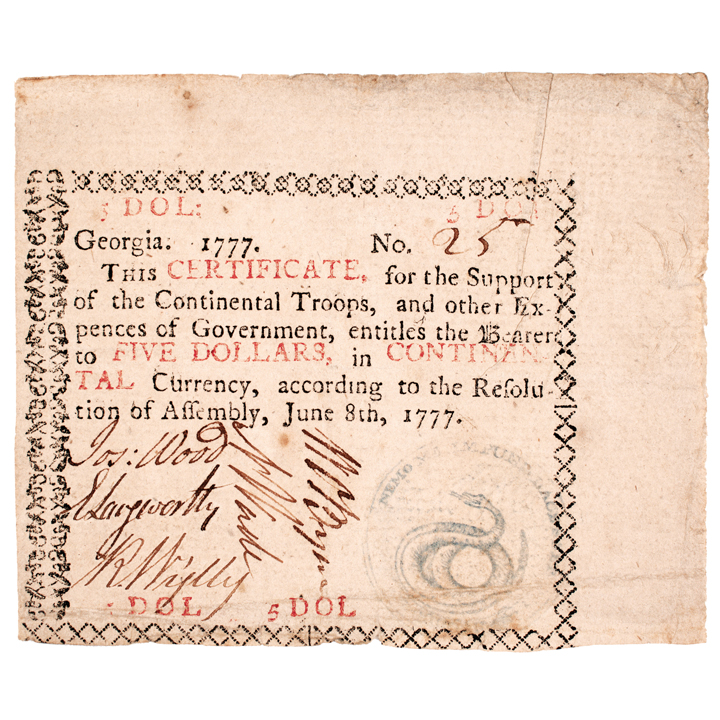 5 DOL: 5 DOL
Georgia. 1777. No. 25
THIS CERTIFICATE, for the Support
of the Continental Troops, and other Ex-
pences of Government, entitles the Bearer
to FIVE DOLLARS, in CONTINEN-
TAL Currency, according to the Reſolu-
tion of Aſſembly, June 8th, 1777.
Jos: Wood
E Langworthy
R. Wylly
5 DOL 5 DOL